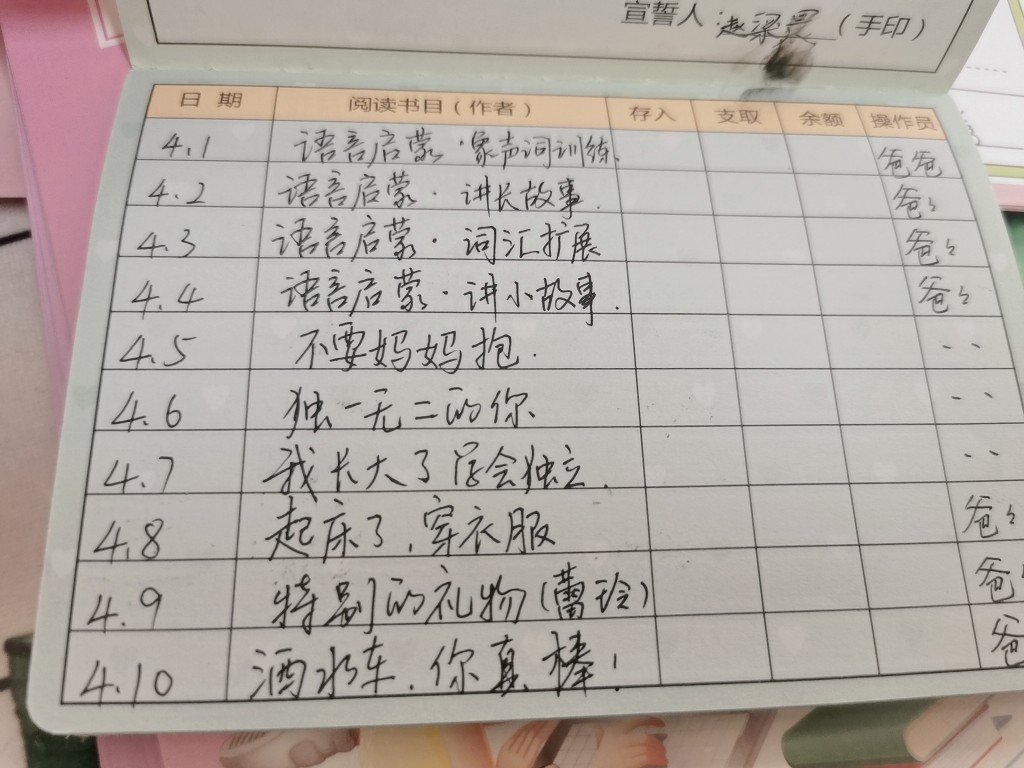 宣誓人:赵梁昊(手印)
日期 阅读书目(作者) 存入 支取 余额 操作员
4.1 语言启蒙·象声词训练. 爸爸
4.2 语言启蒙·讲长故事. 爸々
4.3 语言启蒙·词汇扩展 爸々
4.4 语言启蒙·讲小故事. 爸々
4.5 不要妈妈抱. 、、
4.6 独一无二的你. 、、
4.7 我长大了学会独立. 、、
4.8 起床了,穿衣服 爸々
4.9 特别的礼物(蕾玲) 爸々
4.10 洒水车,你真棒! 爸